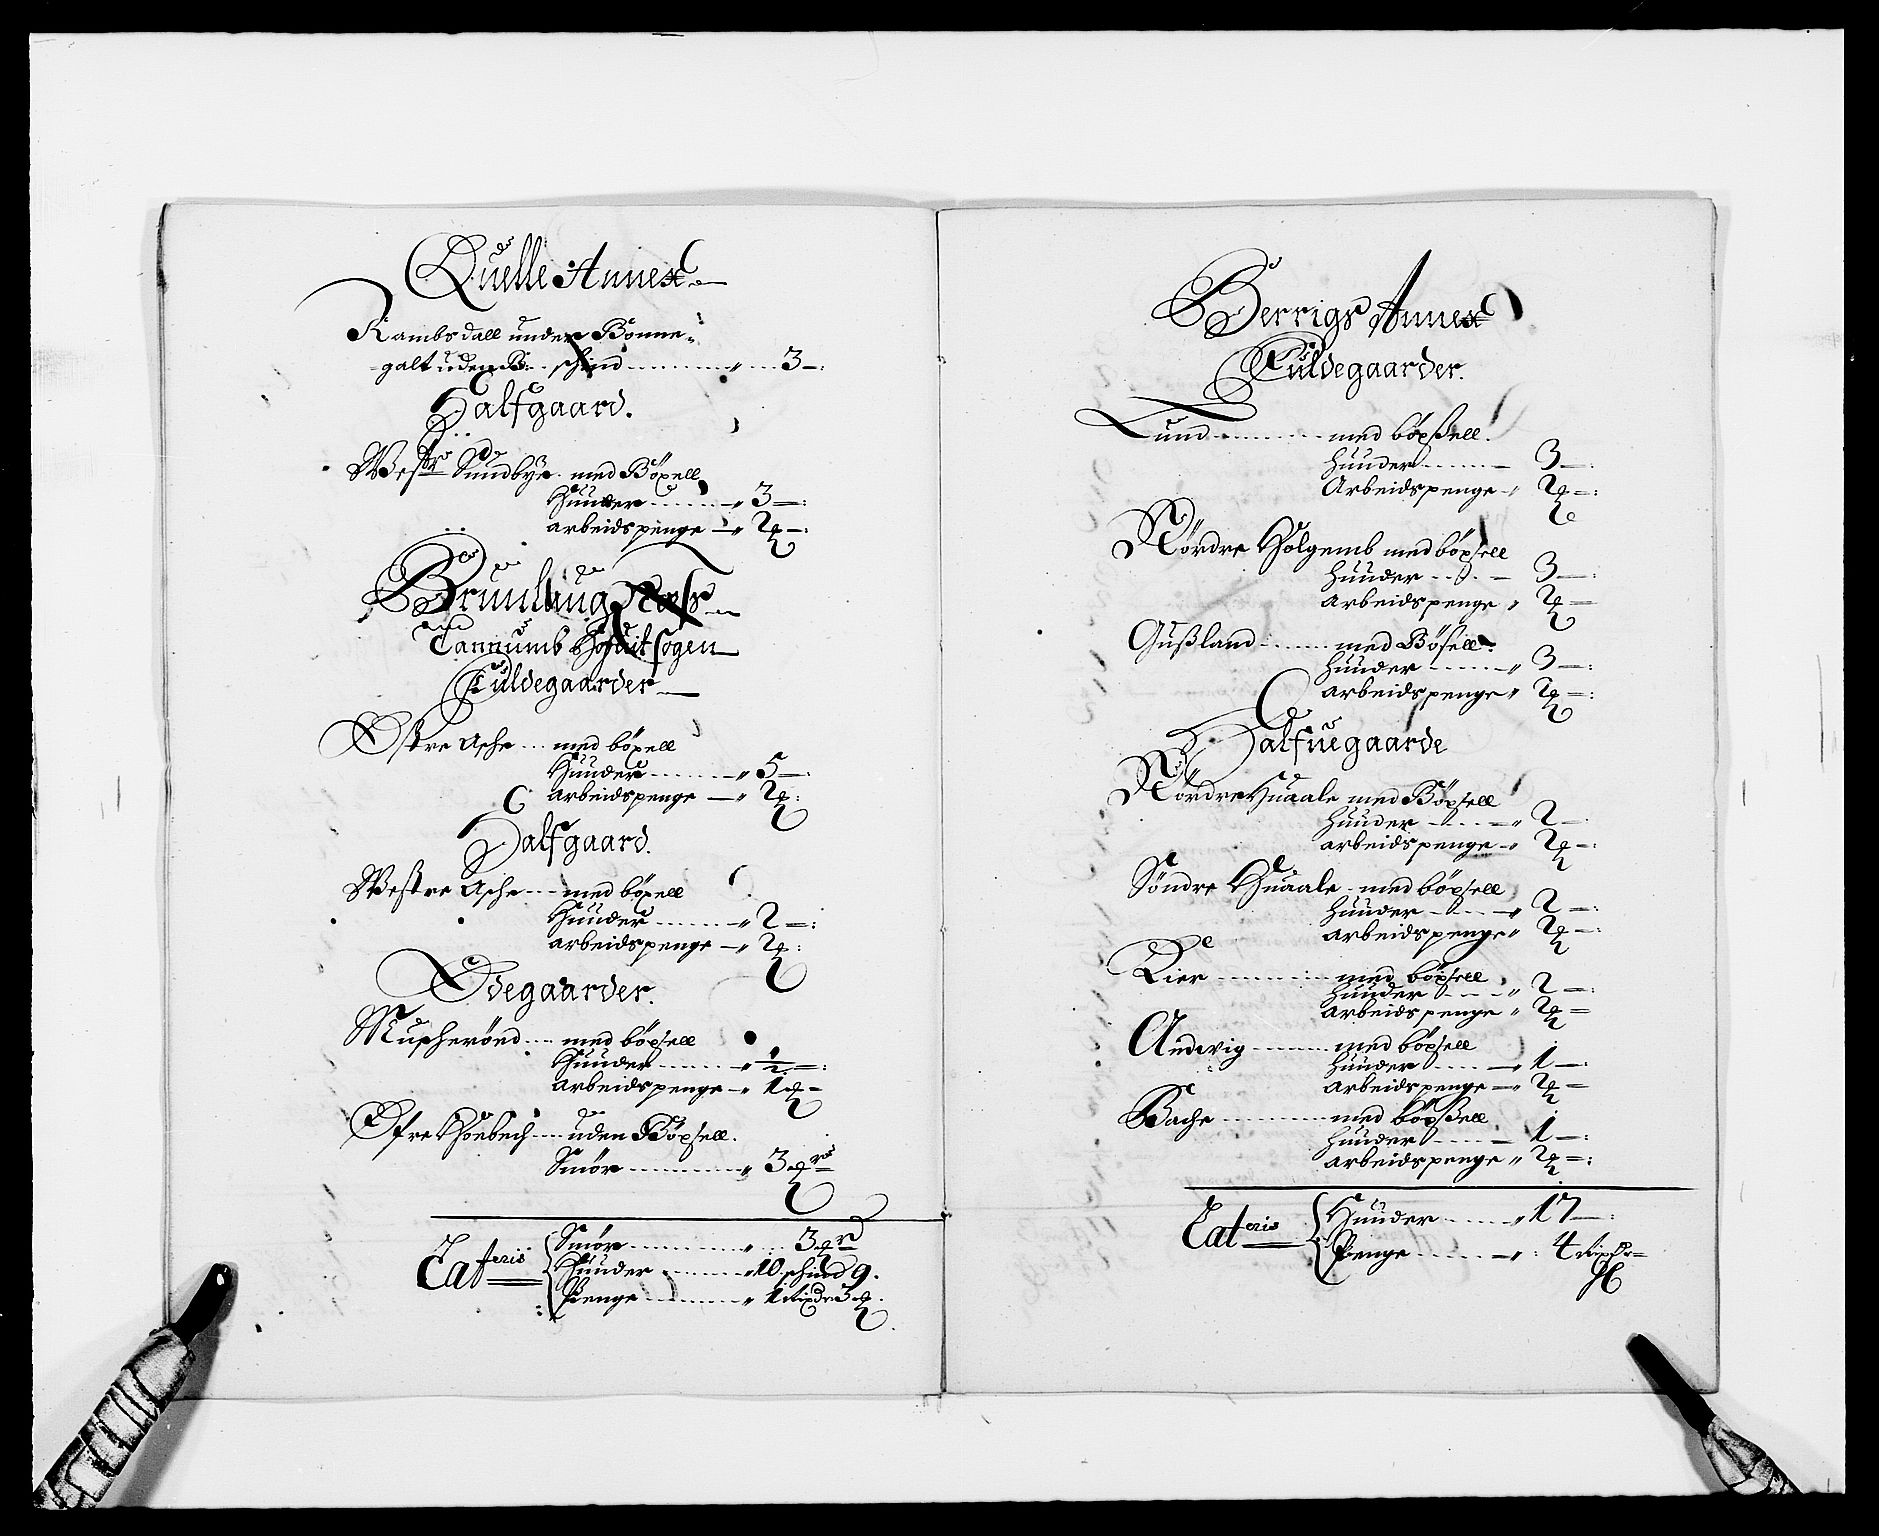 Quelle Annex
Rambsdall under Bonne-
galt uden B: schind 3
Halfgaard.
Westre Sundbye med Böxell
Huuder 3
arbeidspenge 2
Brunlaug Næss
Tannumb Hofuit sogen
Fuldegaarder
Østre Asche med böxell
Huuder 5
arbeidspenge 2
Halfgaard.
Westre Asche med böxell
Huuder 2
arbeidspenge 2
Ødegaarder.
Muscherönd med böxsell
Huuder 1/2
arbeidspenge 1
Øfre Hoebech uden Böxsell.
Smör 3
Lateris
Smör 3
Huuder 10 schind 9.
Penge 1 Rixdr 3
Berrigs Annex
Fuldegaarder.
Lund med böxsell.
Huuder 3
Arbeidspenge 2
Nördre Holgemb med böxsell
huuder 3
arbeidspenge 2
Gußland med Böxsell.
huuder 3
arbeidspenge 2
Halfuegaarde
Nördre Huaale med Böxsell
huuder 2
arbeidspenge 2
Söndre Huaale med böxsell
huuder 2
arbeidspenge 2
Kier med böxsell
huuder 2
arbeidspenge 2
Andwig med böxsell
huuder 1
arbeidspenge 2
Bache med böxsell
huuder 1
arbeidspenge 2
Lateris
Huuder 17
Penge 4 Rixdr